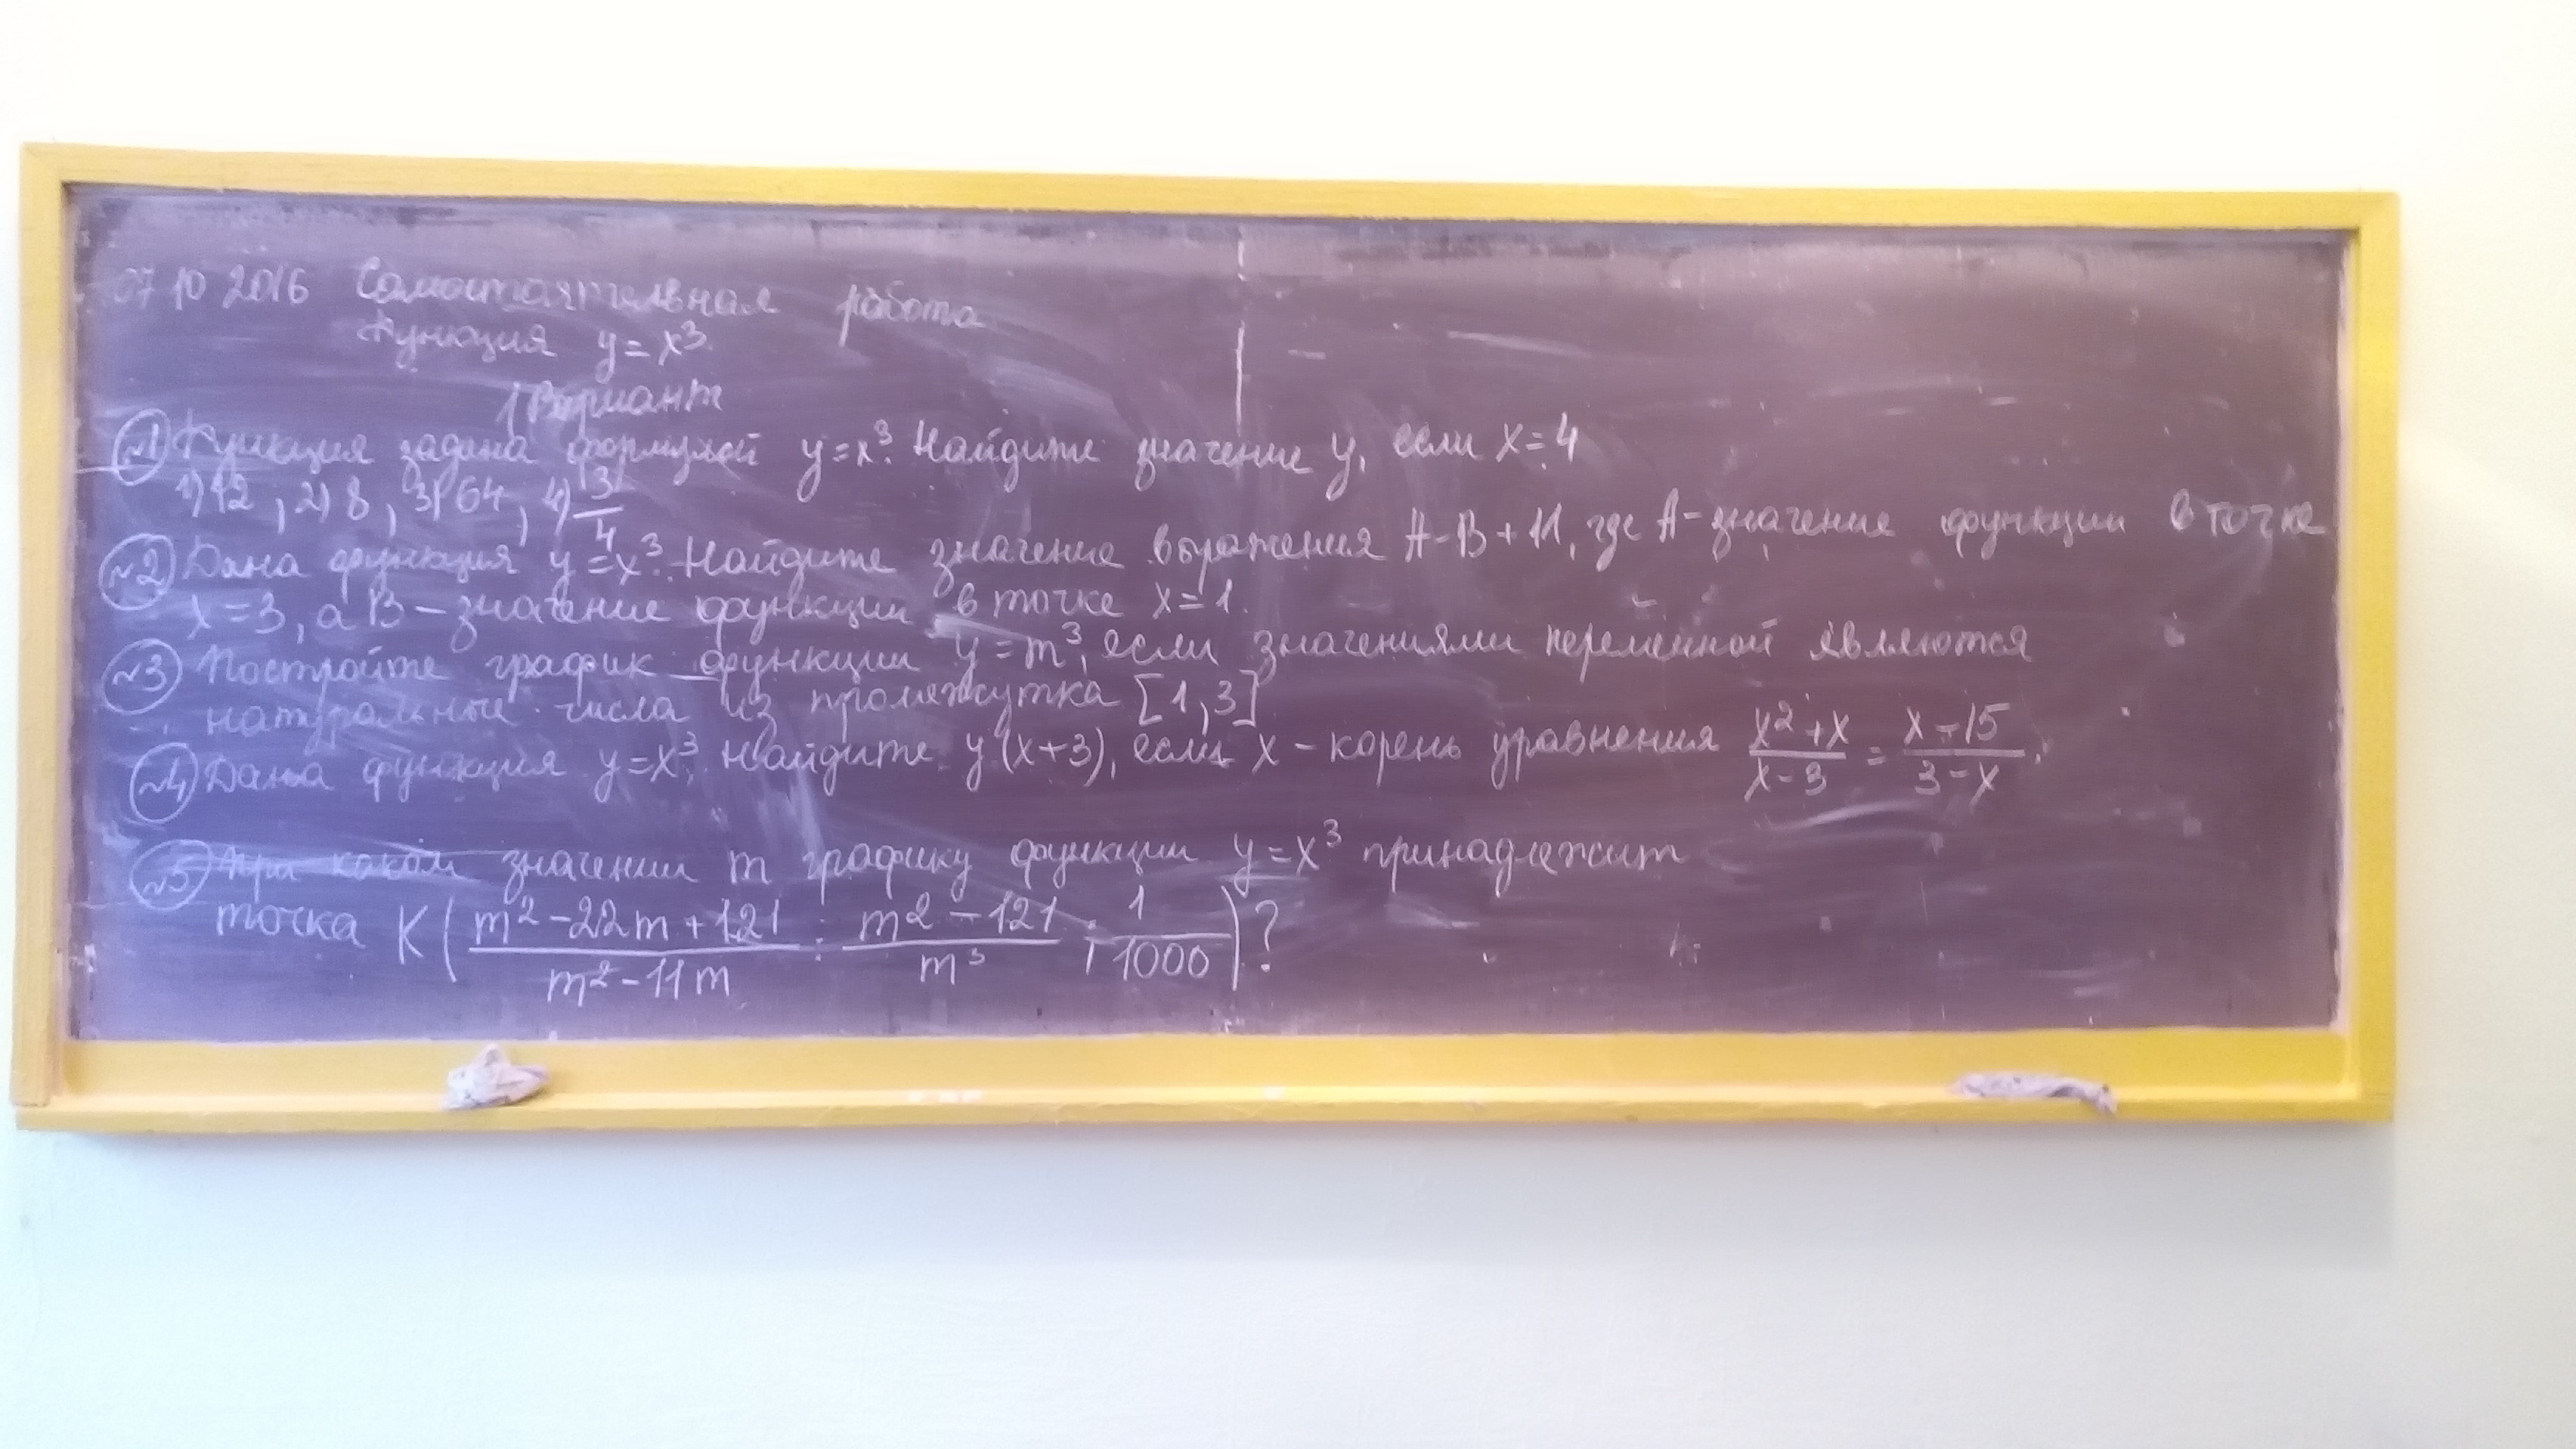 07 10 2016 Самостоятельная работа
Функция y = x³
1 Вариант
№1 Функция задана формулой y = x³. Найдите значение y, если x = 4
1) 12, 2) 8, 3) 64, 4) 3/4
№2 Дана функция y = x³. Найдите значение выражения A - B + 11, где A - значение функции в точке
x = 3, а B - значение функции в точке x = 1.
№3 Постройте график функции y = m³, если значениями переменной являются
натуральные числа из промежутка [1, 3]
№4 Дана функция y = x³. Найдите y(x+3), если x - корень уравнения (x² + x)/(x - 3) = (x - 15)/(3 - x).
№5 При каком значении m графику функции y = x³ принадлежит
точка K((m² - 22m + 121)/(m² - 11m) : (m² - 121)/m³ ; 1/1000)?